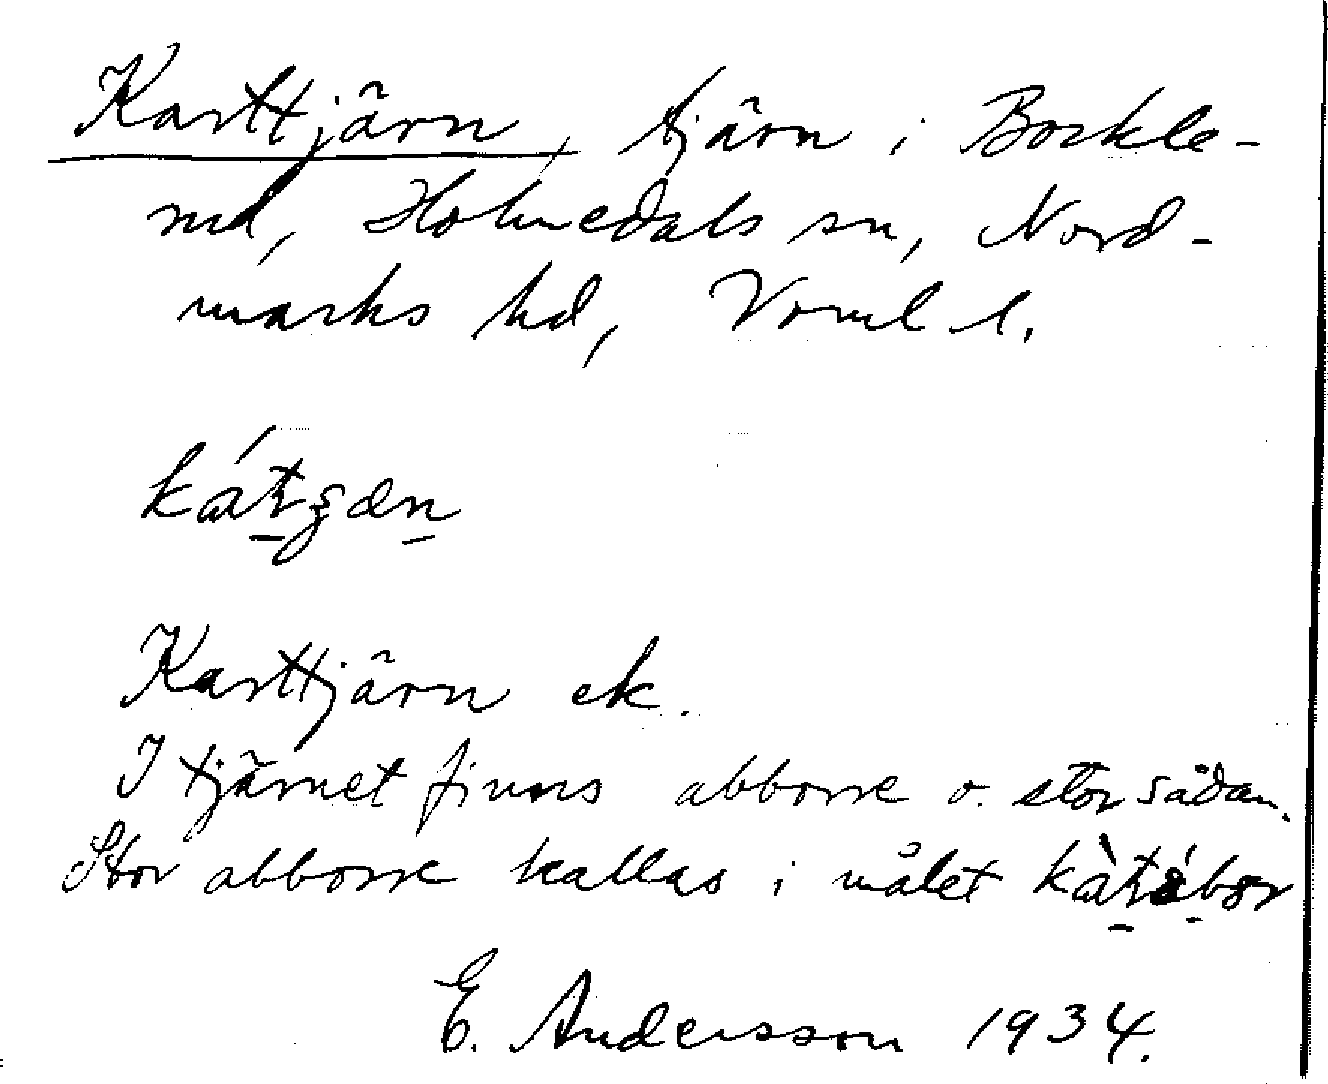 Karttjärn, tjärn i Bockle-
rud, Holmedals sn, Nord-
marks hd, Vrml l.
Karttjärn ek.
I tjärnet finns abborre o. stor sådan.
Stor abborre kallas i målet
E. Andersson 1934.